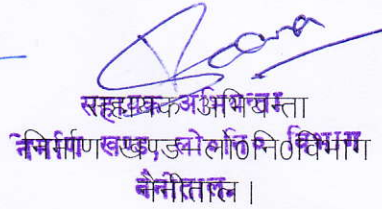 सहायक अभियन्ता
निर्माण खण्ड, लो०नि०विभाग
नैनीताल।